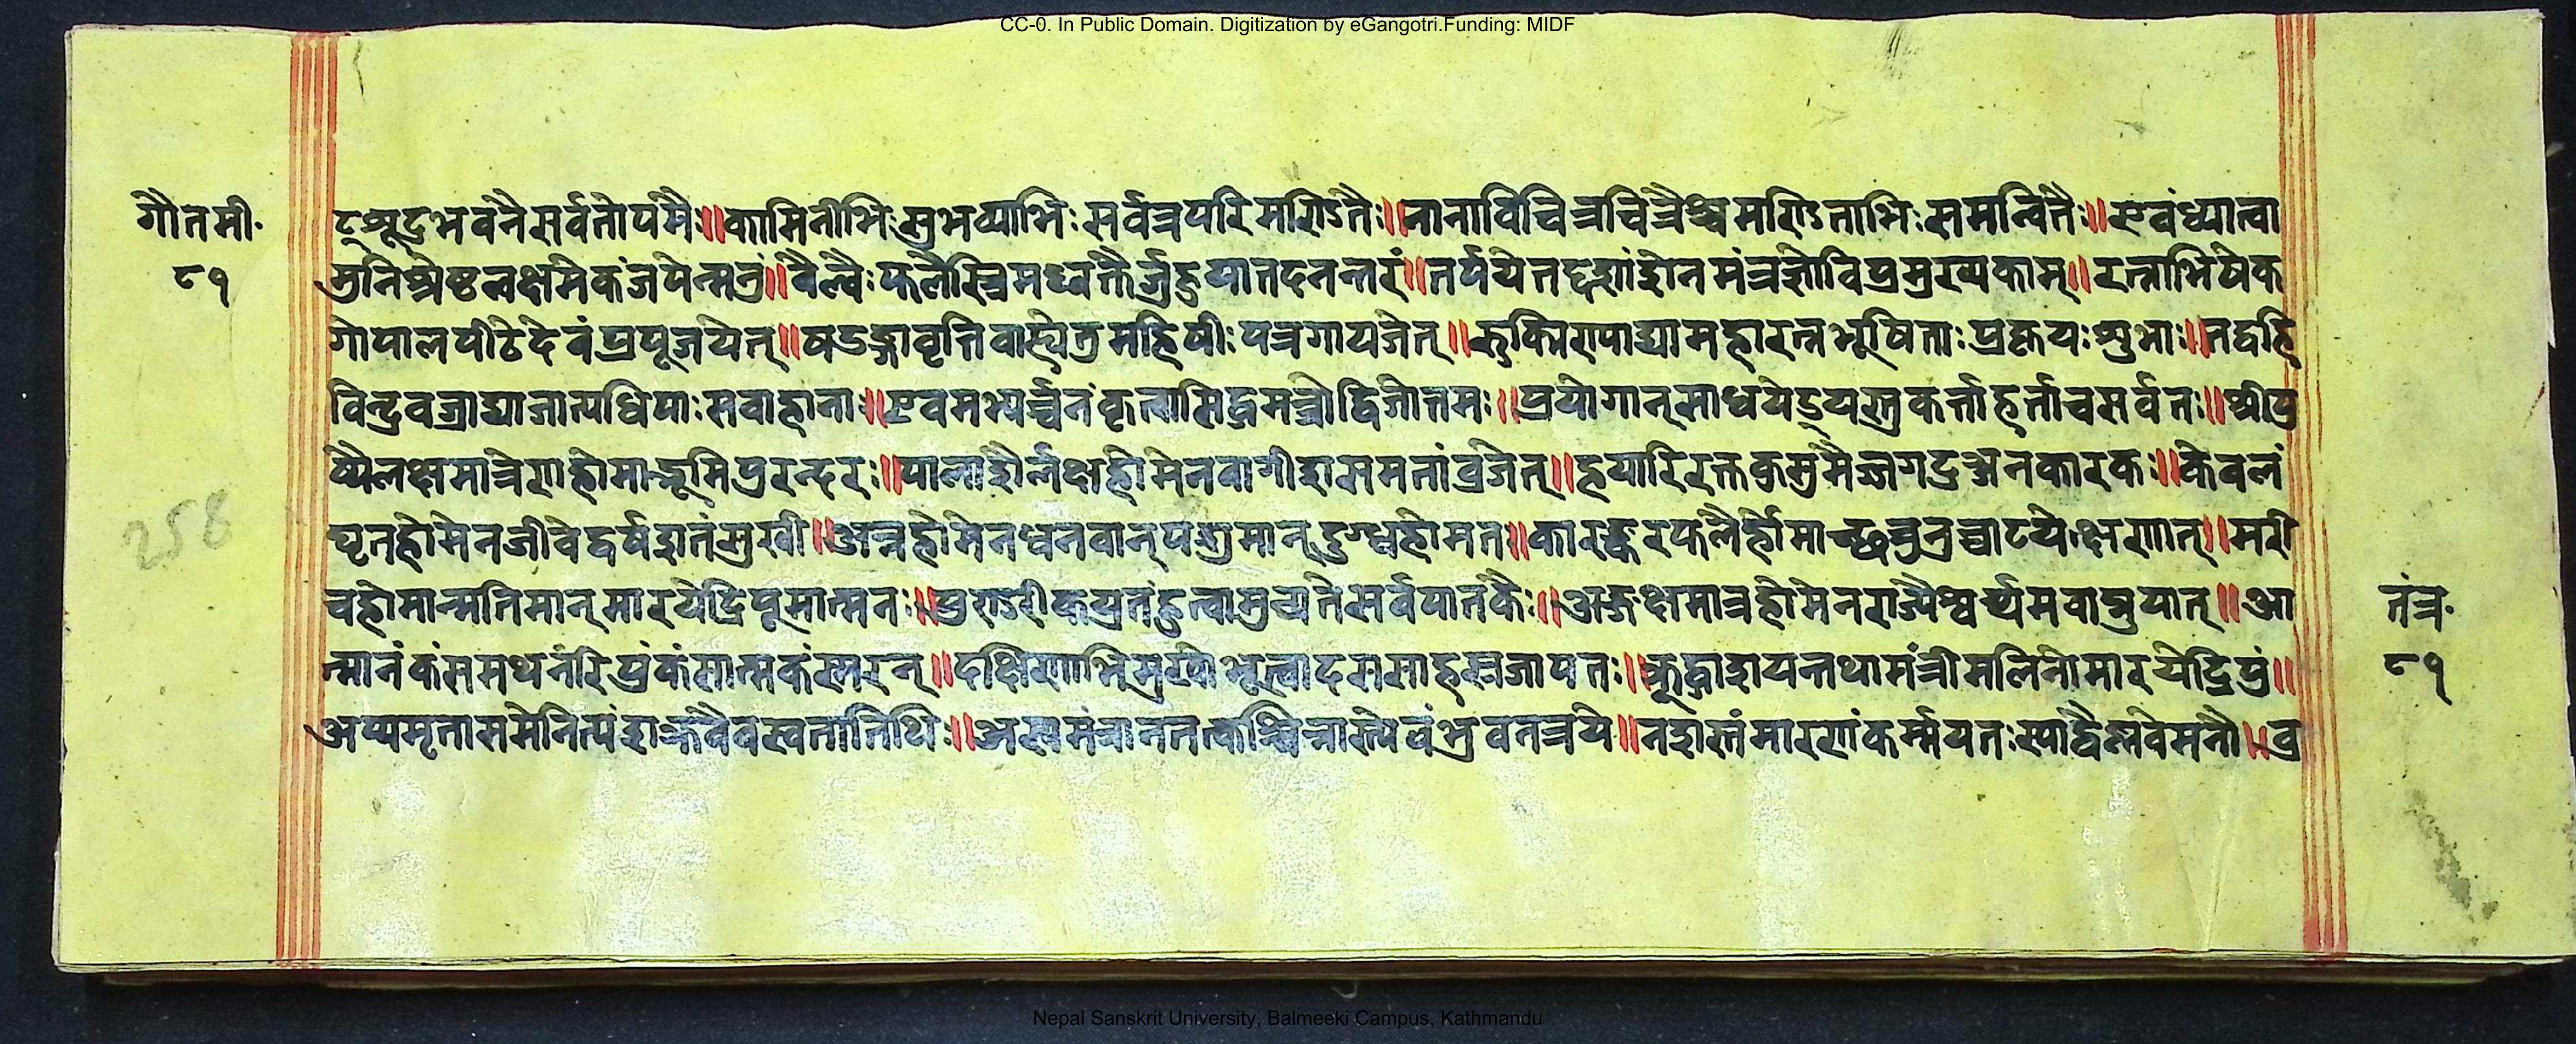 CC-0. In Public Domain. Digitization by eGangotri.Funding: MIDF
गौतमी॰
८१
भवनै सर्वतोपमैः॥कामिनीभिःसुभव्याभिः सर्वत्रपरिमण्डितैः॥नानाविचित्रचित्रैश्चमण्डिताभिः समन्वितैः॥एवंध्यात्वा
मुनिश्रेष्ठलक्षमेकंजपेन्मनुं॥बैल्वैः फलैस्त्रिमध्वक्तैर्जुहुयातदनन्तरं॥तर्पयेत्तद्दशांशेनमंत्रज्ञोविप्रमुख्यकाम्॥रत्नाभिषेक
गोपालपीठेदेवंप्रपूजयेत्॥षडङ्गावृत्तिवाह्येतुमहिषीः पत्रगायजेत्॥रुक्मिण्याद्यामहारत्नभूषिताः शुभाः॥तद्वहि
विन्द्रवज्राद्याजात्यधिपाः सवाहाना॥एवमभ्यर्च्चनंकृत्वासिद्धमन्त्रीद्विजोत्तमः॥प्रयोगान्साधयेद् कर्त्ताहर्त्ताचसर्वतः॥श्रीपु
ष्पैलक्षमात्रेणहोमाद्भूमिपुरन्दरः॥पालाशैर्लक्षहोमेनवागीशसमतांव्रजेत्॥हयारिरक्तकुसुमैर्ज्जगद्रञ्जनकारकः॥केवलं
घृतहोमेनजीवेद्वर्षशतंसुखी॥अन्नहोमेनधनवान्पशुमान्दुग्धहोमत॥कारस्करफलैर्होमाच्छत्रुनुच्चाटयेक्षणात्॥मरी
258
चहोमान्मतिमान्मारयेद्रिपूमात्मनः॥पुण्डरीकयुतंहुत्वामुच्यतेसर्वपातकैः॥अब्जक्षमात्रहोमेनराज्यैश्वर्य्यमवाप्नुयात्॥आ
तंत्र॰
त्मानंकंसमथनंरिपुंकंसात्मकंस्मरन्॥दक्षिणाभिमुखोभूत्वादससाहस्रजापतः॥ मंत्रीमलिनोमारयेद्रिपुं॥
८१
अप्यमृतासमेनित्यं ॥ ॥नशस्तंमारणंकर्म्मयतः स्याद्वैष्णवेमनौ॥व्र
Nepal Sanskrit University, Balmeeki Campus, Kathmandu